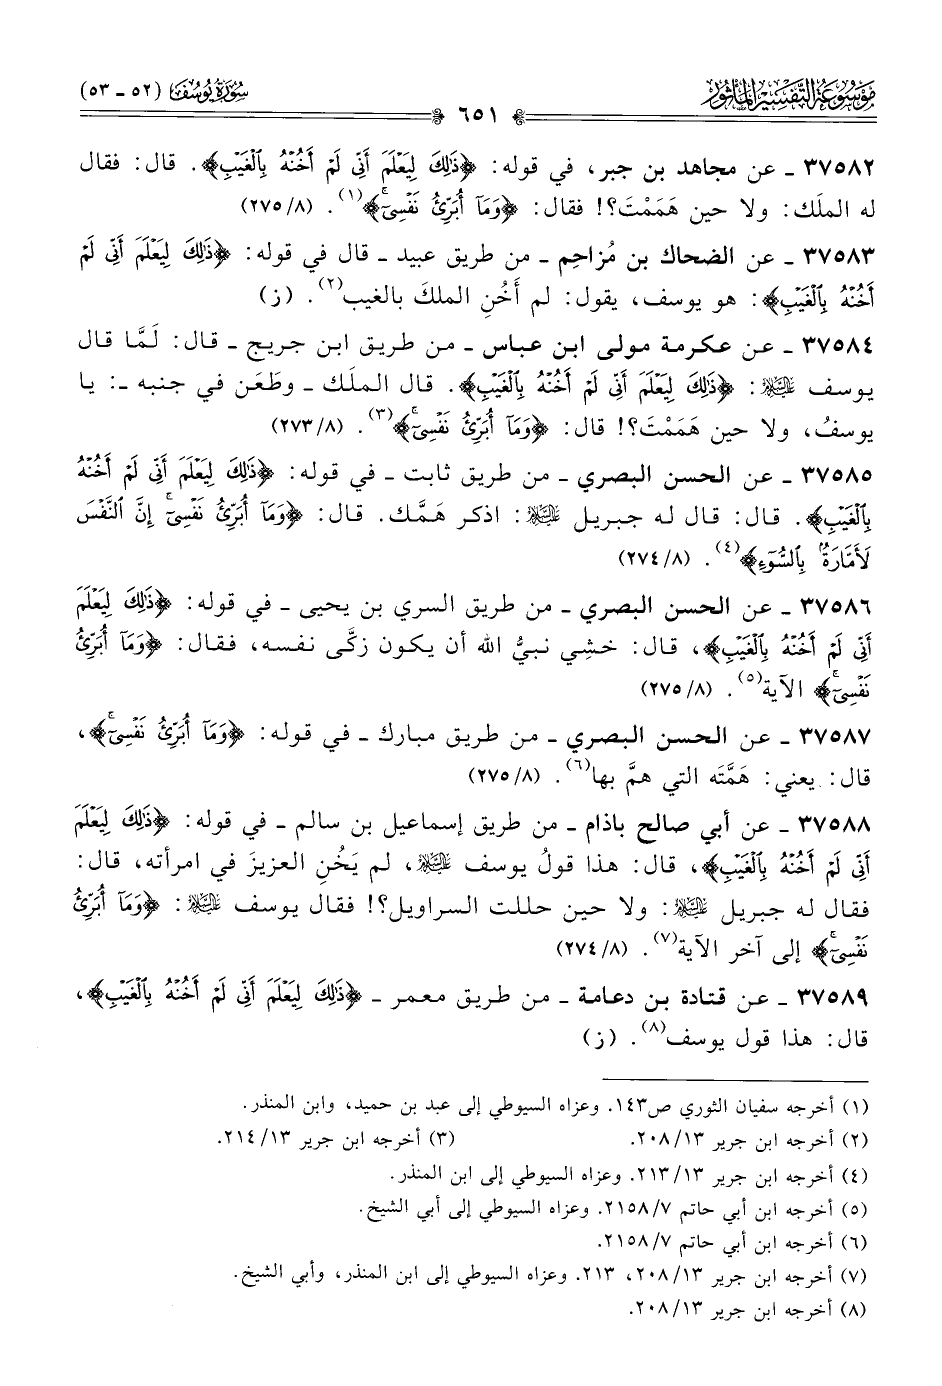 مَوْسُوعَةُ التَّفْسِيرِ المَأْثُور
٦٥١
سُورَةُ يُوسُفَ (٥٢ - ٥٣)
٣٧٥٨٢ - عن مجاهد بن جبر، في قوله: ﴿ذَٰلِكَ لِيَعْلَمَ أَنِّي لَمْ أَخُنْهُ بِالْغَيْبِ﴾. قال: فقال
له الملَك: ولا حين هَمَمْتَ؟! فقال: ﴿وَمَآ أُبَرِّئُ نَفْسِيٓ﴾(١). (٢٧٥/٨)
٣٧٥٨٣ - عن الضحاك بن مُزاحِم - من طريق عبيد - قال في قوله: ﴿ذَٰلِكَ لِيَعْلَمَ أَنِّي لَمْ
أَخُنْهُ بِالْغَيْبِ﴾: هو يوسف، يقول: لم أَخُنِ الملكَ بالغيب(٢). (ز)
٣٧٥٨٤ - عن عكرمة مولى ابن عباس - من طريق ابن جريج - قال: لَمَّا قال
يوسف ﵇: ﴿ذَٰلِكَ لِيَعْلَمَ أَنِّي لَمْ أَخُنْهُ بِالْغَيْبِ﴾. قال الملَك - وطَعَن في جنبه -: يا
يوسفُ، ولا حين هَمَمْتَ؟! قال: ﴿وَمَآ أُبَرِّئُ نَفْسِيٓ﴾(٣). (٢٧٣/٨)
٣٧٥٨٥ - عن الحسن البصري - من طريق ثابت - في قوله: ﴿ذَٰلِكَ لِيَعْلَمَ أَنِّي لَمْ أَخُنْهُ
بِالْغَيْبِ﴾. قال: قال له جبريل ﵇: اذكر هَمَّك. قال: ﴿وَمَآ أُبَرِّئُ نَفْسِيٓ إِنَّ النَّفْسَ
لَأَمَّارَةٌ بِالسُّوٓءِ﴾(٤). (٢٧٤/٨)
٣٧٥٨٦ - عن الحسن البصري - من طريق السري بن يحيى - في قوله: ﴿ذَٰلِكَ لِيَعْلَمَ
أَنِّي لَمْ أَخُنْهُ بِالْغَيْبِ﴾، قال: خشِي نبيُّ الله أن يكون زكَّى نفسه، فقال: ﴿وَمَآ أُبَرِّئُ
نَفْسِيٓ﴾ الآية(٥). (٢٧٥/٨)
٣٧٥٨٧ - عن الحسن البصري - من طريق مبارك - في قوله: ﴿وَمَآ أُبَرِّئُ نَفْسِيٓ﴾،
قال: يعني: هَمَّتَه التي همَّ بها(٦). (٢٧٥/٨)
٣٧٥٨٨ - عن أبي صالح باذام - من طريق إسماعيل بن سالم - في قوله: ﴿ذَٰلِكَ لِيَعْلَمَ
أَنِّي لَمْ أَخُنْهُ بِالْغَيْبِ﴾، قال: هذا قولُ يوسف ﵇، لم يَخُنِ العزيزَ في امرأته، قال:
فقال له جبريل ﵇: ولا حين حللت السراويل؟! فقال يوسف ﵇: ﴿وَمَآ أُبَرِّئُ
نَفْسِيٓ﴾ إلى آخر الآية(٧). (٢٧٤/٨)
٣٧٥٨٩ - عن قتادة بن دعامة - من طريق معمر - ﴿ذَٰلِكَ لِيَعْلَمَ أَنِّي لَمْ أَخُنْهُ بِالْغَيْبِ﴾،
قال: هذا قول يوسف(٨). (ز)
(١) أخرجه سفيان الثوري ص١٤٣. وعزاه السيوطي إلى عبد بن حميد، وابن المنذر.
(٢) أخرجه ابن جرير ٢٠٨/١٣. (٣) أخرجه ابن جرير ٢١٤/١٣.
(٤) أخرجه ابن جرير ٢١٣/١٣. وعزاه السيوطي إلى ابن المنذر.
(٥) أخرجه ابن أبي حاتم ٢١٥٨/٧. وعزاه السيوطي إلى أبي الشيخ.
(٦) أخرجه ابن أبي حاتم ٢١٥٨/٧.
(٧) أخرجه ابن جرير ٢٠٨/١٣، ٢١٣. وعزاه السيوطي إلى ابن المنذر، وأبي الشيخ.
(٨) أخرجه ابن جرير ٢٠٨/١٣.